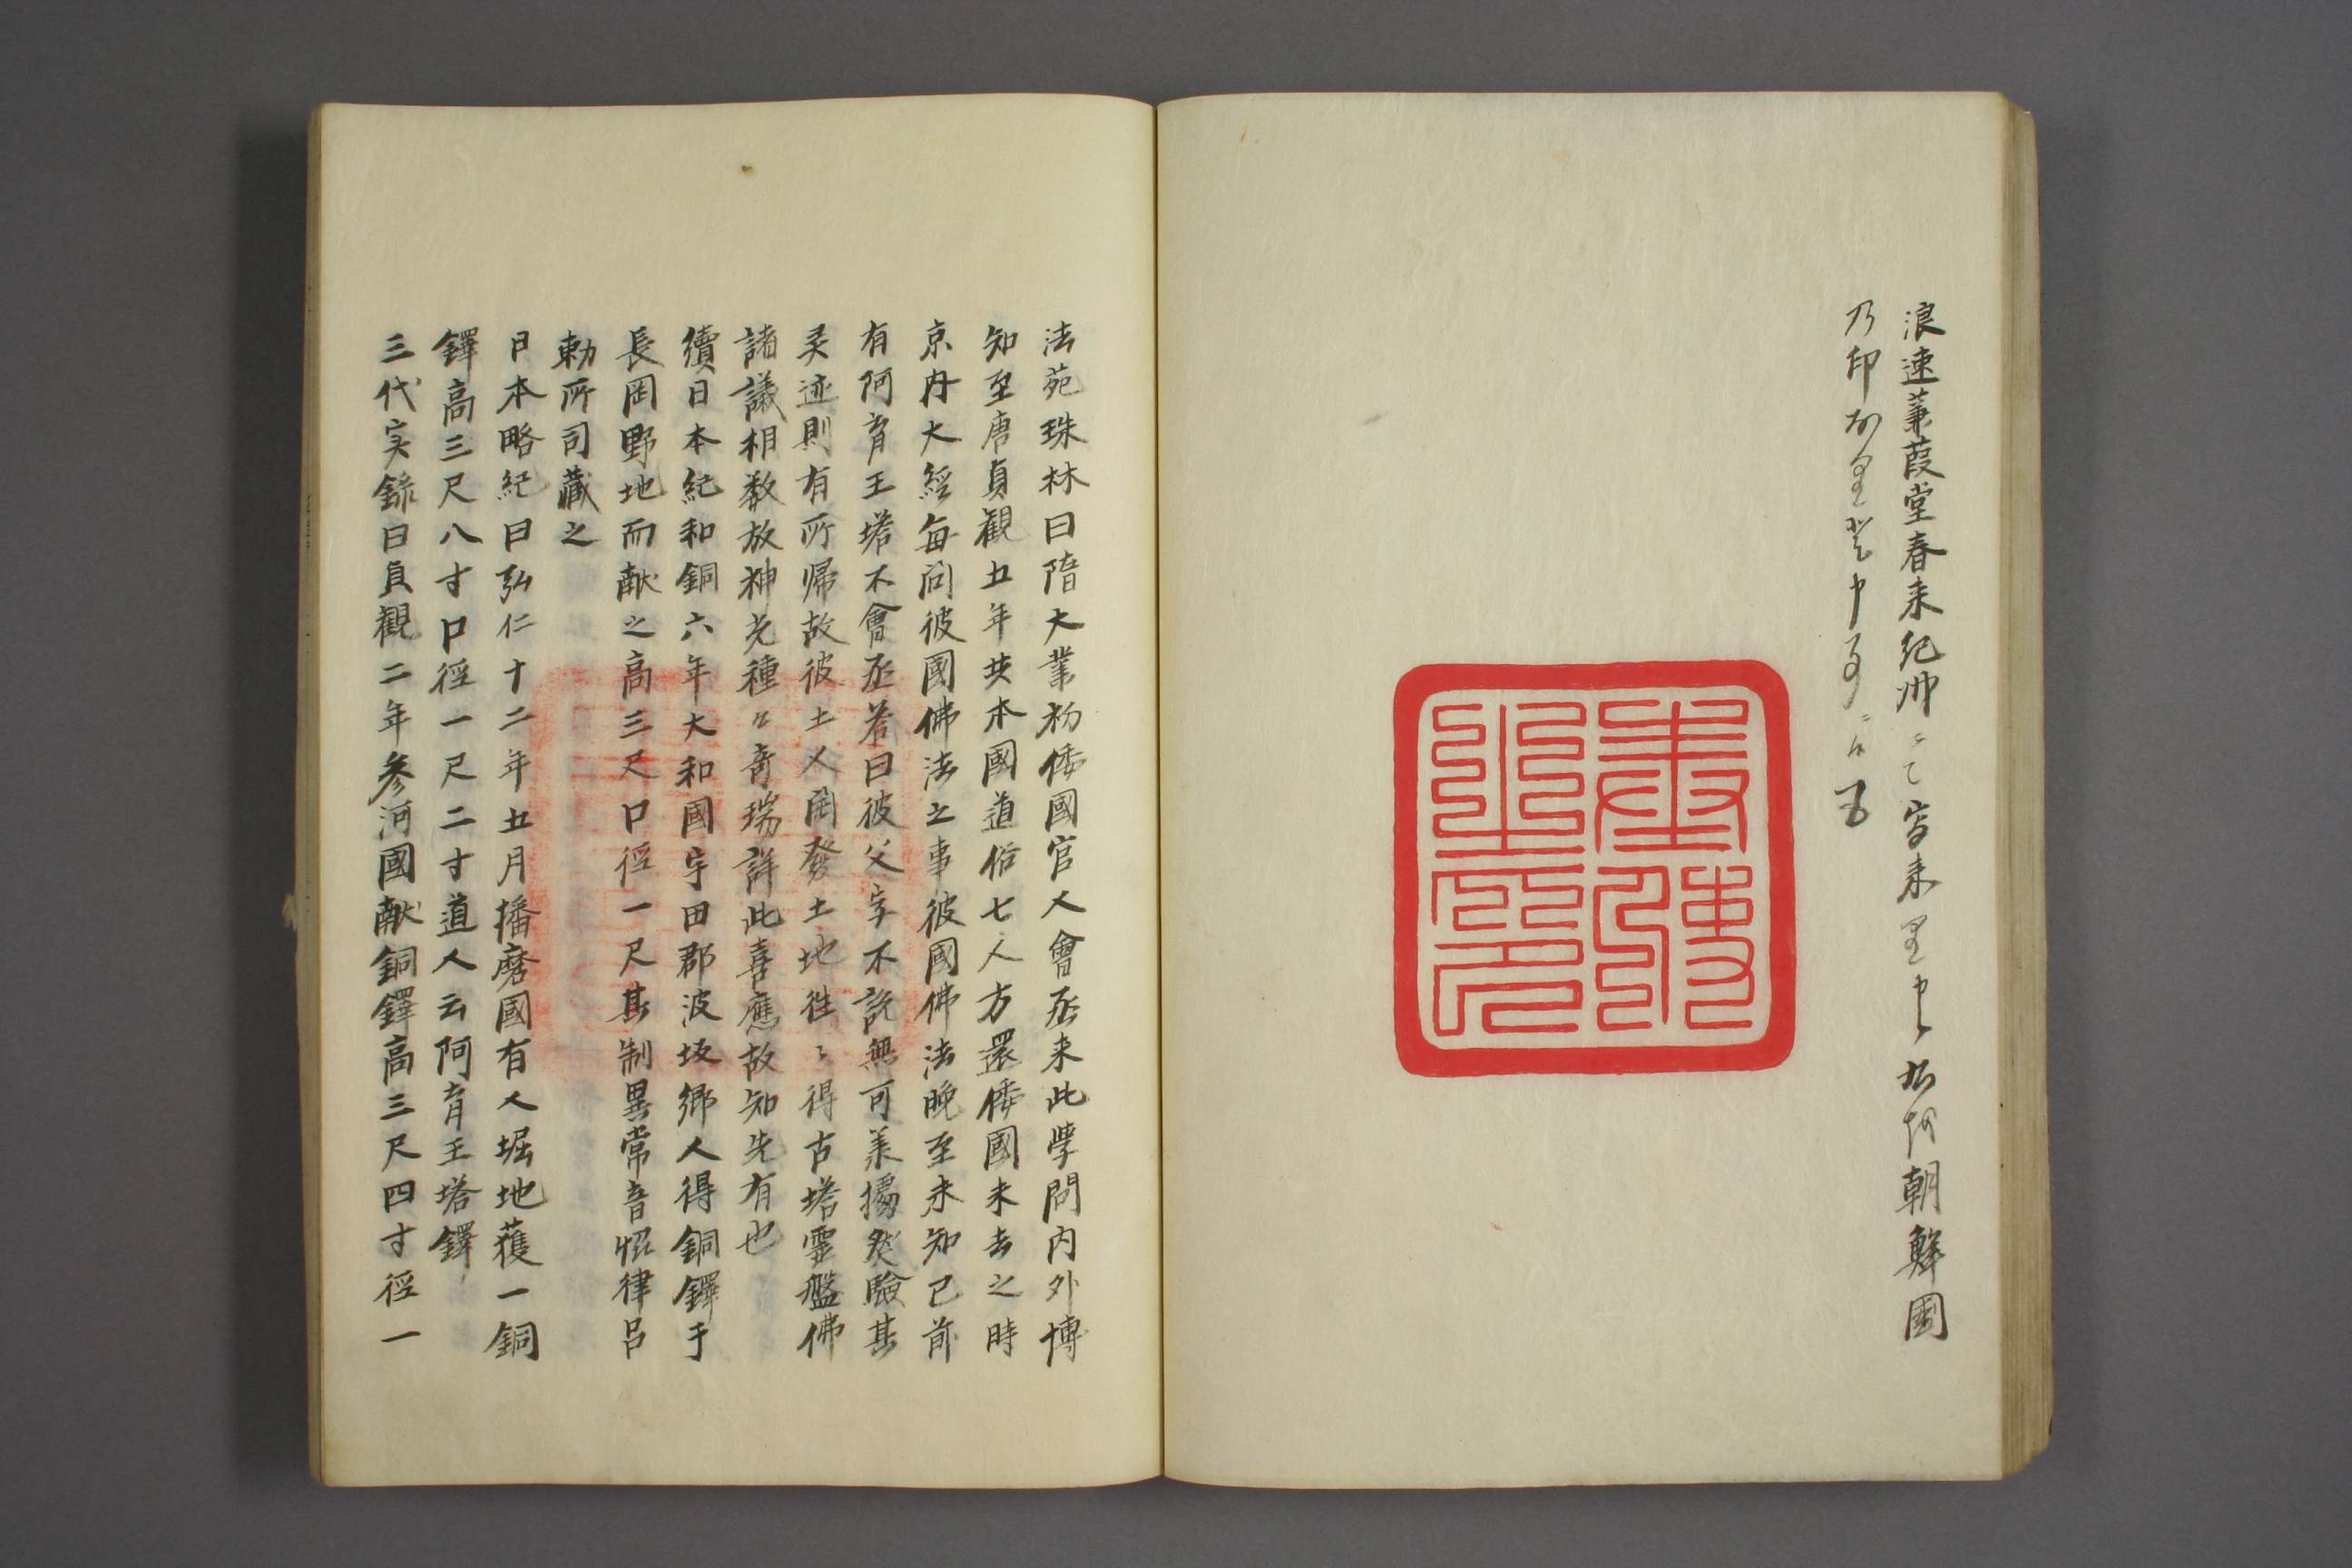 浪速蒹葭堂春来紀州
朝鮮国
乃印
法苑珠林曰隋大業初倭國官人會丞来此学問内外博
知至唐貞観五年共本國道俗七人方還倭國未去之時
京内大経毎問彼國佛法之事彼國佛法晚至未知已前
有阿育王塔不會丞荅曰彼父字不説無可羕攄然驗其
灵迹則有所帰故彼土人開發土地徃〻得古塔霊盤佛
諸議相数放神光種々奇瑞詳此喜應故知先有也
續日本紀和銅六年大和國宇田郡波坂郷人得銅鐸于
長岡野地而献之高三尺口徑一尺其制異常音恊律吕
勅所司藏之
日本略紀曰弘仁十二年五月播磨國有人堀地獲一銅
鐸高三尺八寸口徑一尺二寸道人云阿育王塔鐸
三代実録曰貞観二年参河國献銅鐸高三尺四寸徑一